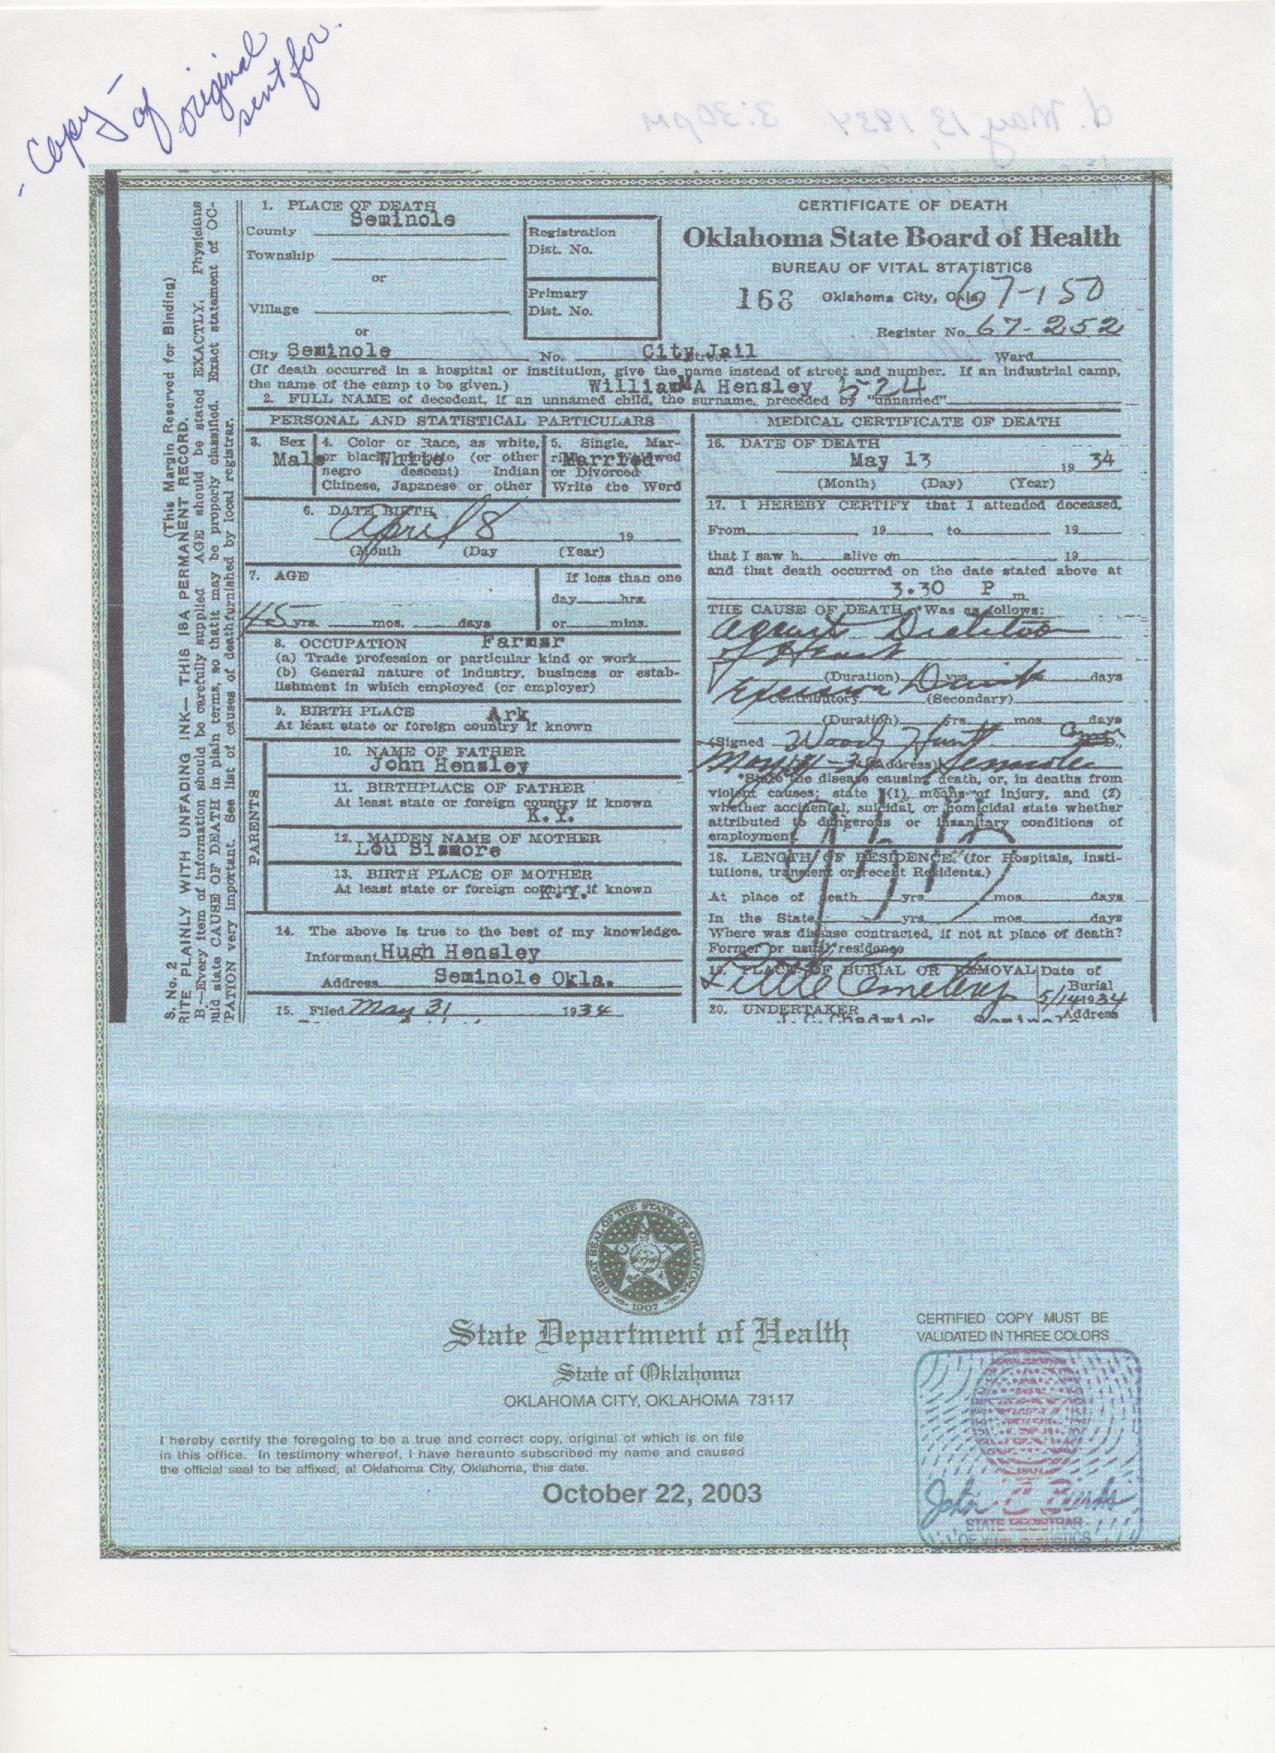 - Copy - of original sent for.
d. May 13, 1934 3:30pm
CERTIFICATE OF DEATH
Oklahoma State Board of Health
BUREAU OF VITAL STATISTICS
168 Oklahoma City, Okla. 67-150
Register No. 67-252
(This Margin Reserved for Binding)
S. No. 2
RITE PLAINLY WITH UNFADING INK— THIS IS A PERMANENT RECORD.
B.—Every item of information should be carefully supplied. AGE should be stated EXACTLY. Physicians
uld state CAUSE OF DEATH in plain terms, so that it may be properly classified. Exact statement of OC-
PATION very important. See list of causes of death furnished by local registrar.
1. PLACE OF DEATH
County Seminole
Township
or
Village
or
Registration
Dist. No.
Primary
Dist. No.
City Seminole No. City Jail Street Ward
(If death occurred in a hospital or institution, give the name instead of street and number. If an industrial camp,
the name of the camp to be given.) William A Hensley 524
2. FULL NAME of decedent, if an unnamed child, the surname, preceded by "unnamed"
PERSONAL AND STATISTICAL PARTICULARS
3. Sex
Male
4. Color or Race, as white,
or black, mulatto (or other
negro descent) Indian
Chinese, Japanese or other
White
5. Single, Mar-
ried, Widowed
or Divorced
Write the Word
Married
6. DATE BIRTH
April 8 19
(Month (Day (Year)
7. AGE
45 yrs. mos. days
If less than one
day hrs.
or mins.
8. OCCUPATION Farmer
(a) Trade profession or particular kind or work
(b) General nature of industry, business or estab-
lishment in which employed (or employer)
9. BIRTH PLACE Ark
At least state or foreign country if known
PARENTS
10. NAME OF FATHER
John Hensley
11. BIRTHPLACE OF FATHER
At least state or foreign country if known
K.Y.
12. MAIDEN NAME OF MOTHER
Lou Sismore
13. BIRTH PLACE OF MOTHER
At least state or foreign country if known
K.Y.
14. The above is true to the best of my knowledge.
Informant Hugh Hensley
Address Seminole Okla.
15. Filed May 31 1934
MEDICAL CERTIFICATE OF DEATH
16. DATE OF DEATH
May 13 19 34
(Month) (Day) (Year)
17. I HEREBY CERTIFY that I attended deceased,
From 19 to 19
that I saw h alive on 19
and that death occurred on the date stated above at
3.30 P m.
THE CAUSE OF DEATH *Was as follows:
of Heart
(Duration) yrs. days
Contributory (Secondary)
(Duration) yrs. mos. days
(Signed Woody Hunt
(Address) Seminole
*State the disease causing death, or, in deaths from
violent causes; state (1) means of injury, and (2)
whether accidental, suicidal, or homicidal state whether
attributed to dangerous or insanitary conditions of
employment
18. LENGTH OF RESIDENCE. (for Hospitals, insti-
tutions, transient or recent Residents.)
At place of death yrs mos days
In the State yrs mos days
Where was disease contracted, if not at place of death?
Former or usual residence
19. PLACE OF BURIAL OR REMOVAL
Little Cemetery
Date of
Burial
5/14 1934
20. UNDERTAKER Address
J.C. Chadwick Seminole
GREAT SEAL OF THE STATE OF OKLAHOMA
1907
State Department of Health
State of Oklahoma
OKLAHOMA CITY, OKLAHOMA 73117
I hereby certify the foregoing to be a true and correct copy, original of which is on file
in this office. In testimony whereof, I have hereunto subscribed my name and caused
the official seal to be affixed, at Oklahoma City, Oklahoma, this date.
October 22, 2003
CERTIFIED COPY MUST BE
VALIDATED IN THREE COLORS
STATE REGISTRAR
OF VITAL STATISTICS